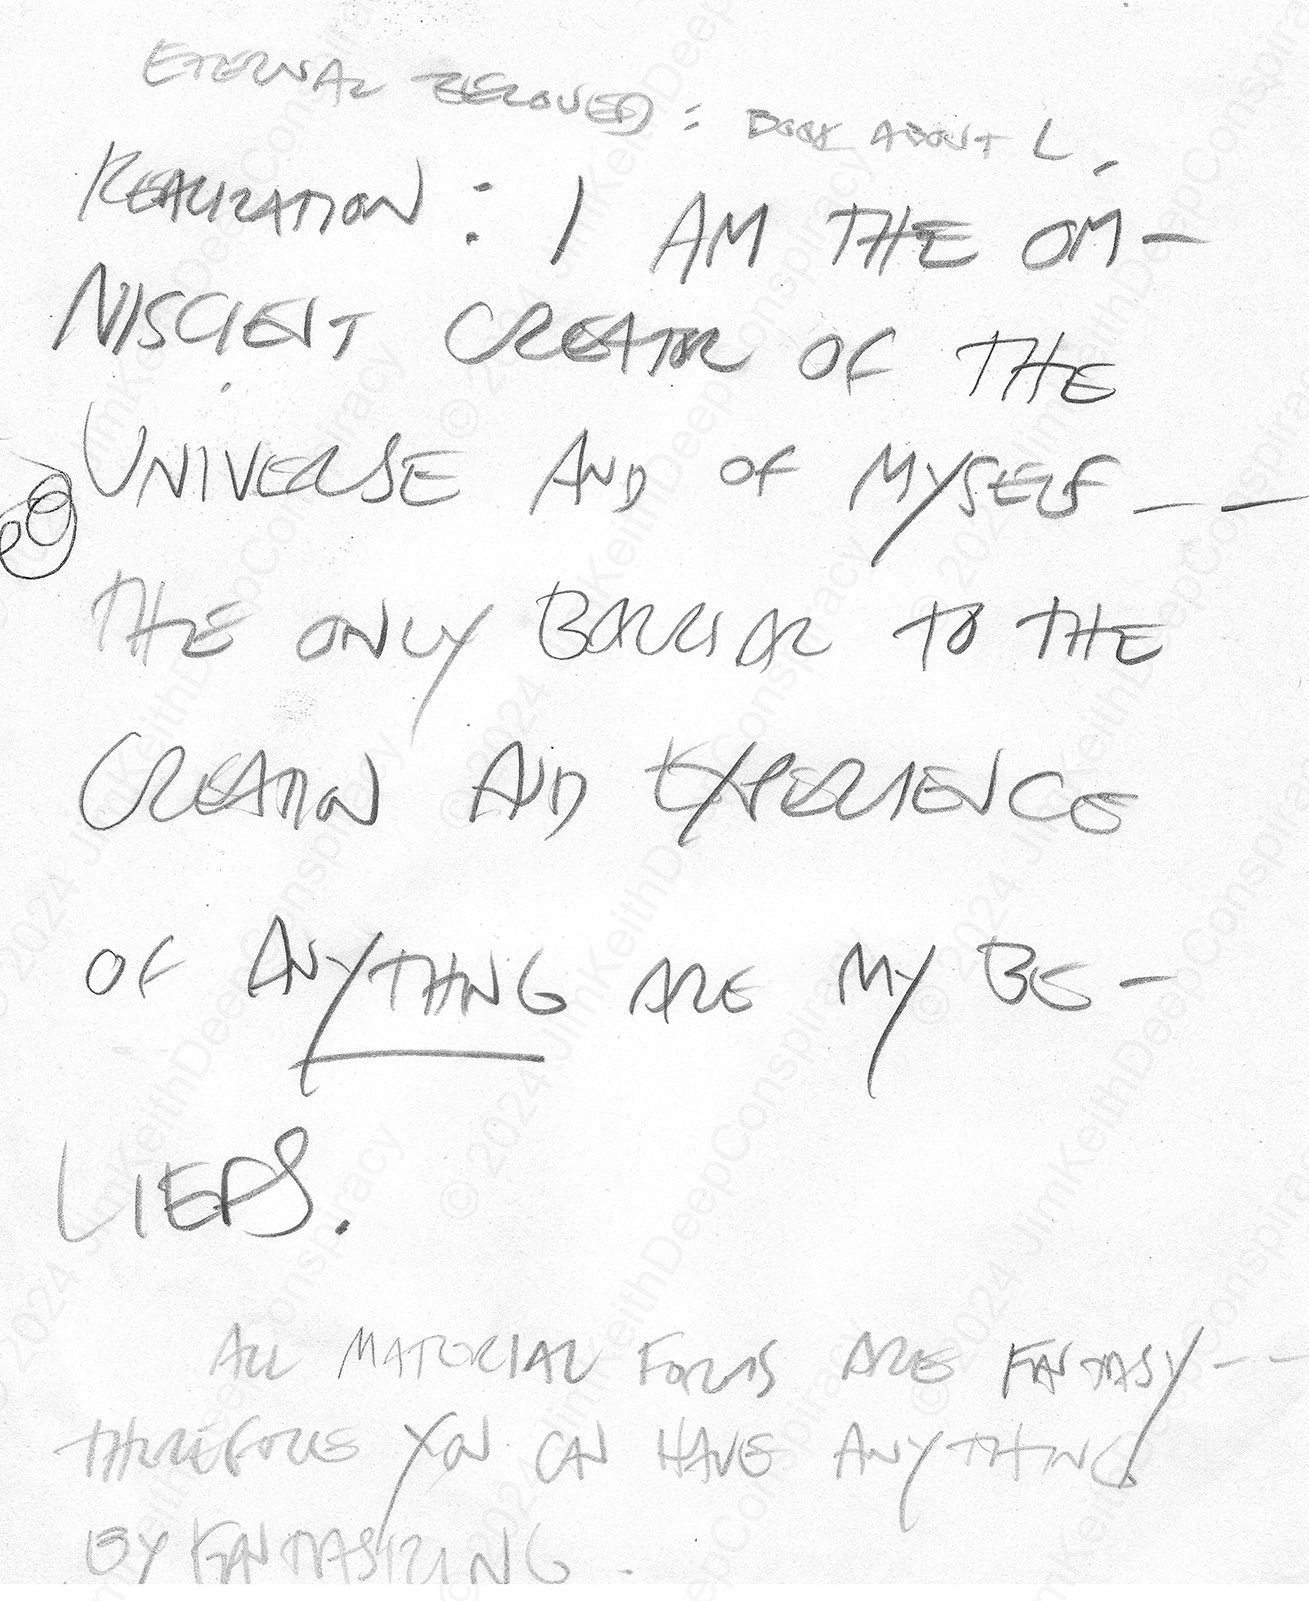 ETERNAL BELOVED: BOOK ABOUT L.
REALIZATION: I AM THE OM-
NISCIENT CREATOR OF THE
UNIVERSE AND OF MYSELF -- 
THE ONLY BARRIAR TO THE
CREATION AND EXPERIENCE
OF ANYTHING ARE MY BE-
LIEFS.
ALL MATERIAL FORMS ARE FANTASY--
THEREFORE YOU CAN HAVE ANYTHING
BY FANTASIZING.
© 2024 JimKeithDeepConspiracy